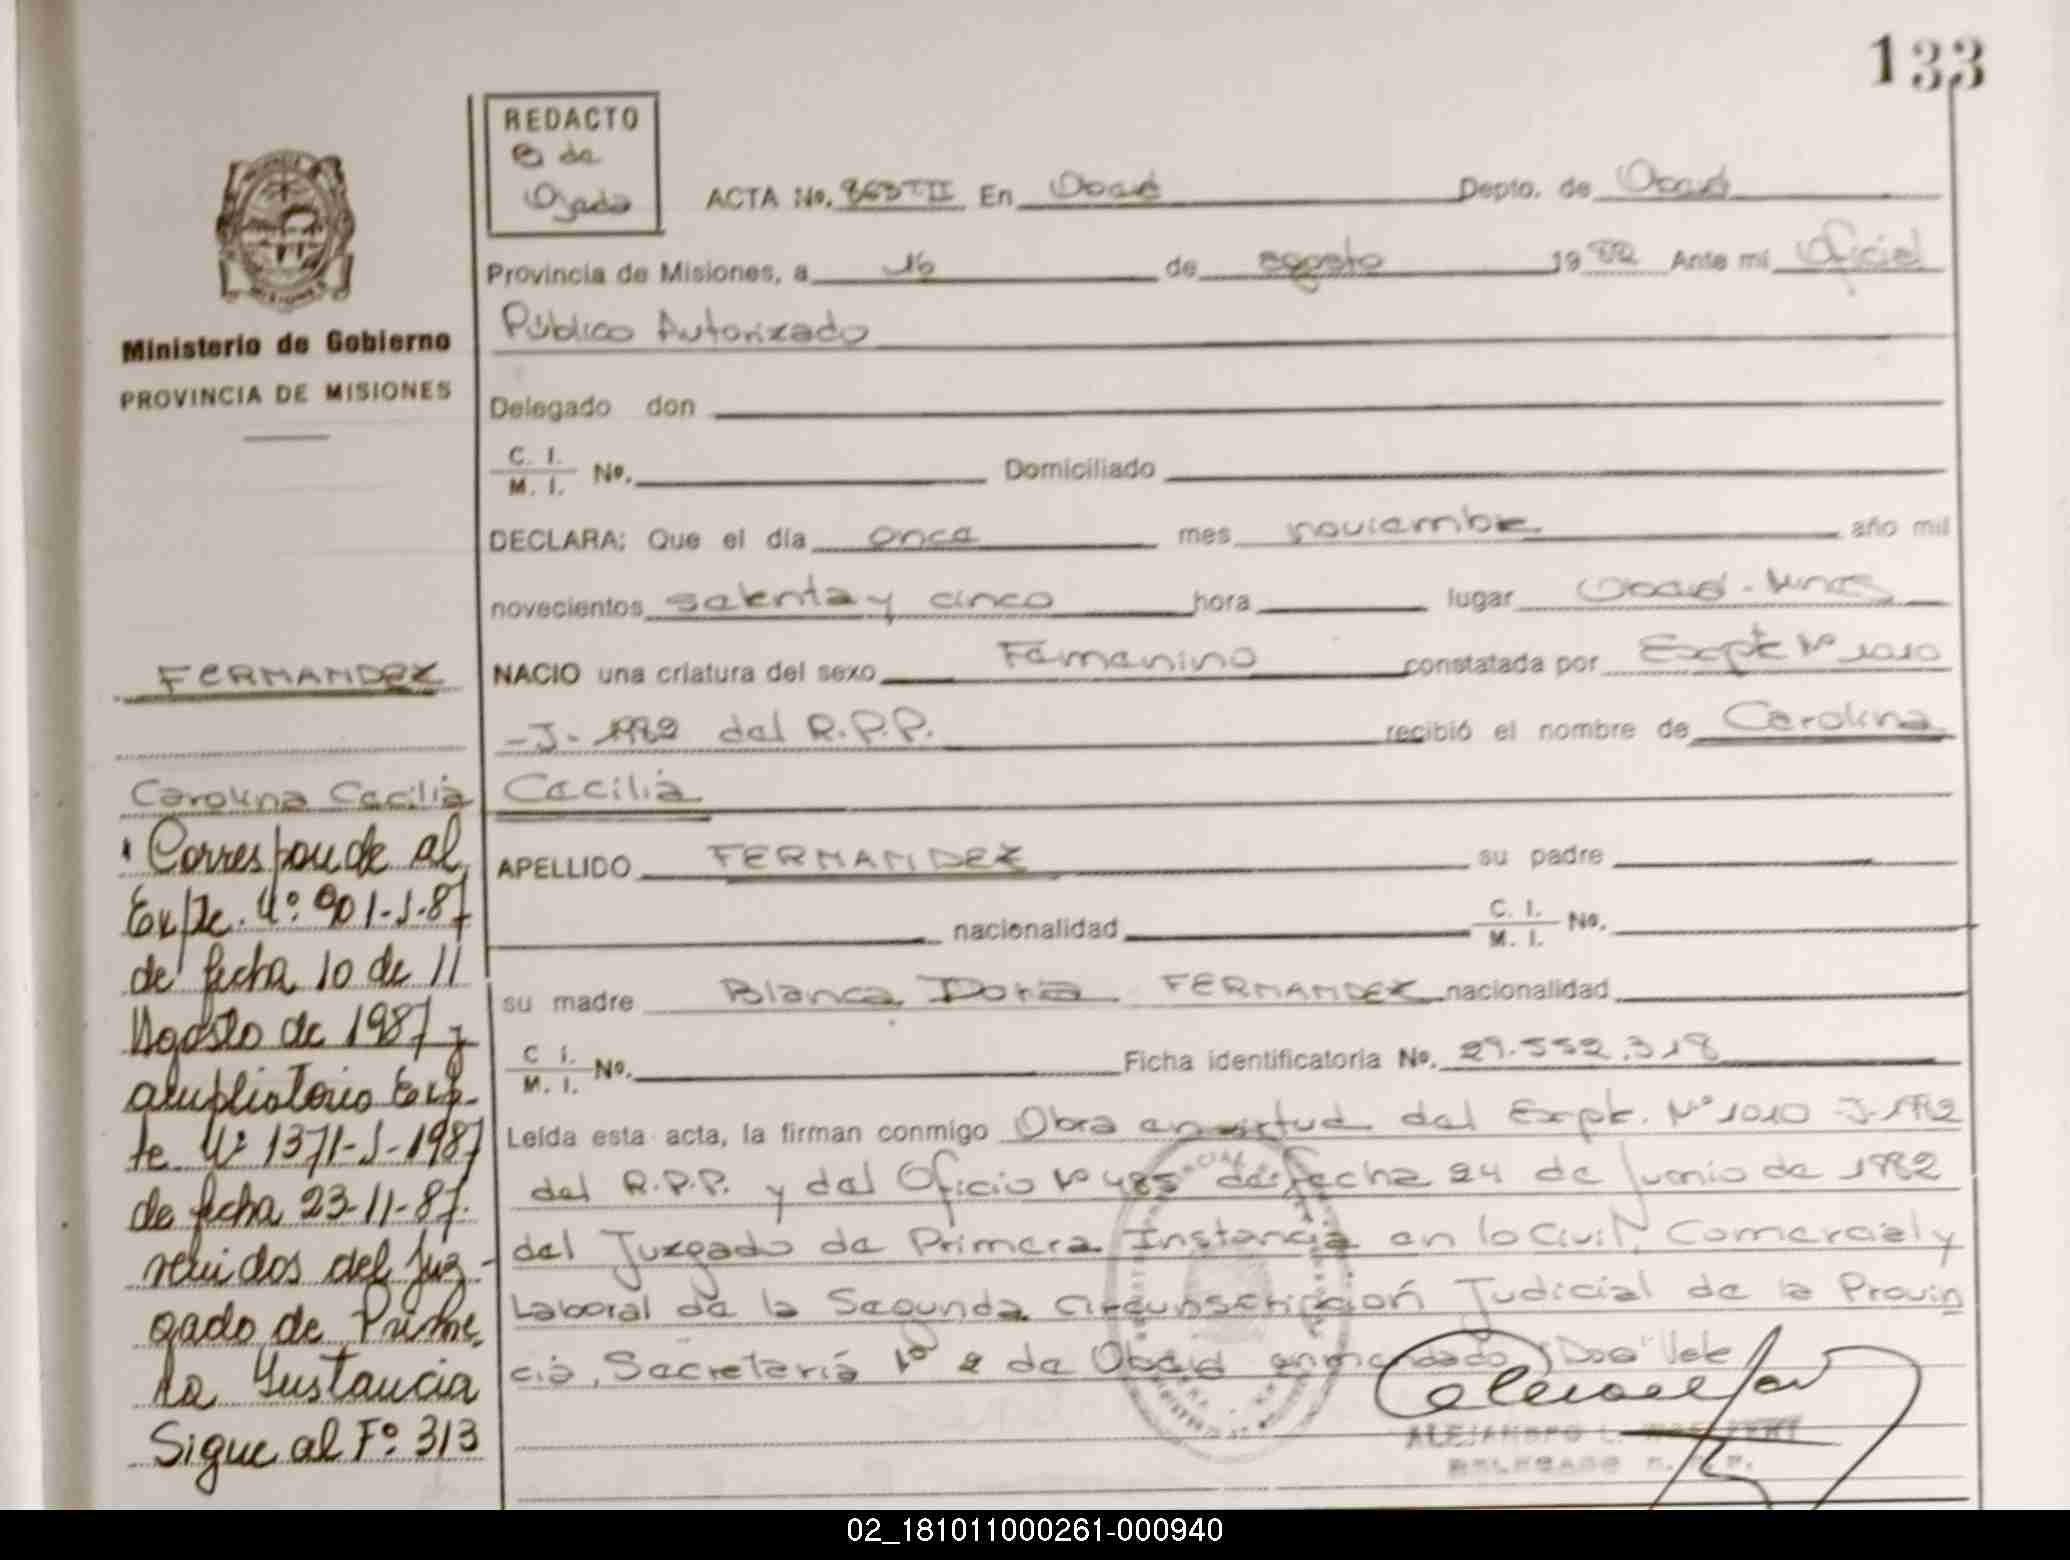 133
REDACTO
B de
Ojeda
ACTA No. 863 TII En Oberá Depto. de Oberá
Provincia de Misiones, a 16 de agosto 1982 Ante mi Oficial
Público Autorizado
Ministerio de Gobierno
PROVINCIA DE MISIONES
Delegado don
C. I.
M. I. No. Domiciliado
DECLARA: Que el día once mes noviembre año mil
novecientos setenta y cinco hora lugar Oberá - Mnes
FERNANDEZ
NACIO una criatura del sexo Femenino constatada por Expte Nº 1010
-J- 1982 del R.P.P. recibió el nombre de Carolina
Carolina Cecilia
Cecilia
APELLIDO FERNANDEZ su padre
nacionalidad C. I.
M. I. No.
su madre Blanca Doria FERNANDEZ nacionalidad
C. I.
M. I. No. Ficha identificatoria No. 29.552.318
Leída esta acta, la firman conmigo Obra en virtud del Expte. Nº 1010 -J-1982
del R.P.P. y del Oficio Nº 485 de fecha 24 de Junio de 1982
del Juzgado de Primera Instancia en lo Civil, Comercial y
Laboral de la Segunda Circunscripción Judicial de la Provin
cia, Secretaría 1º de Oberá enmendado Vale
Corresponde al
Expte. Nº 901-J-87
de fecha 10 de
Agosto de 1987 y
ampliatorio Exp-
te Nº 1371-J-1987
de fecha 23-11-87.
venidos del Juz-
gado de Prime-
ra Instancia
Sigue al Fº 313
ALEJANDRO L.
DELEGADO R. P. P.
02_181011000261-000940